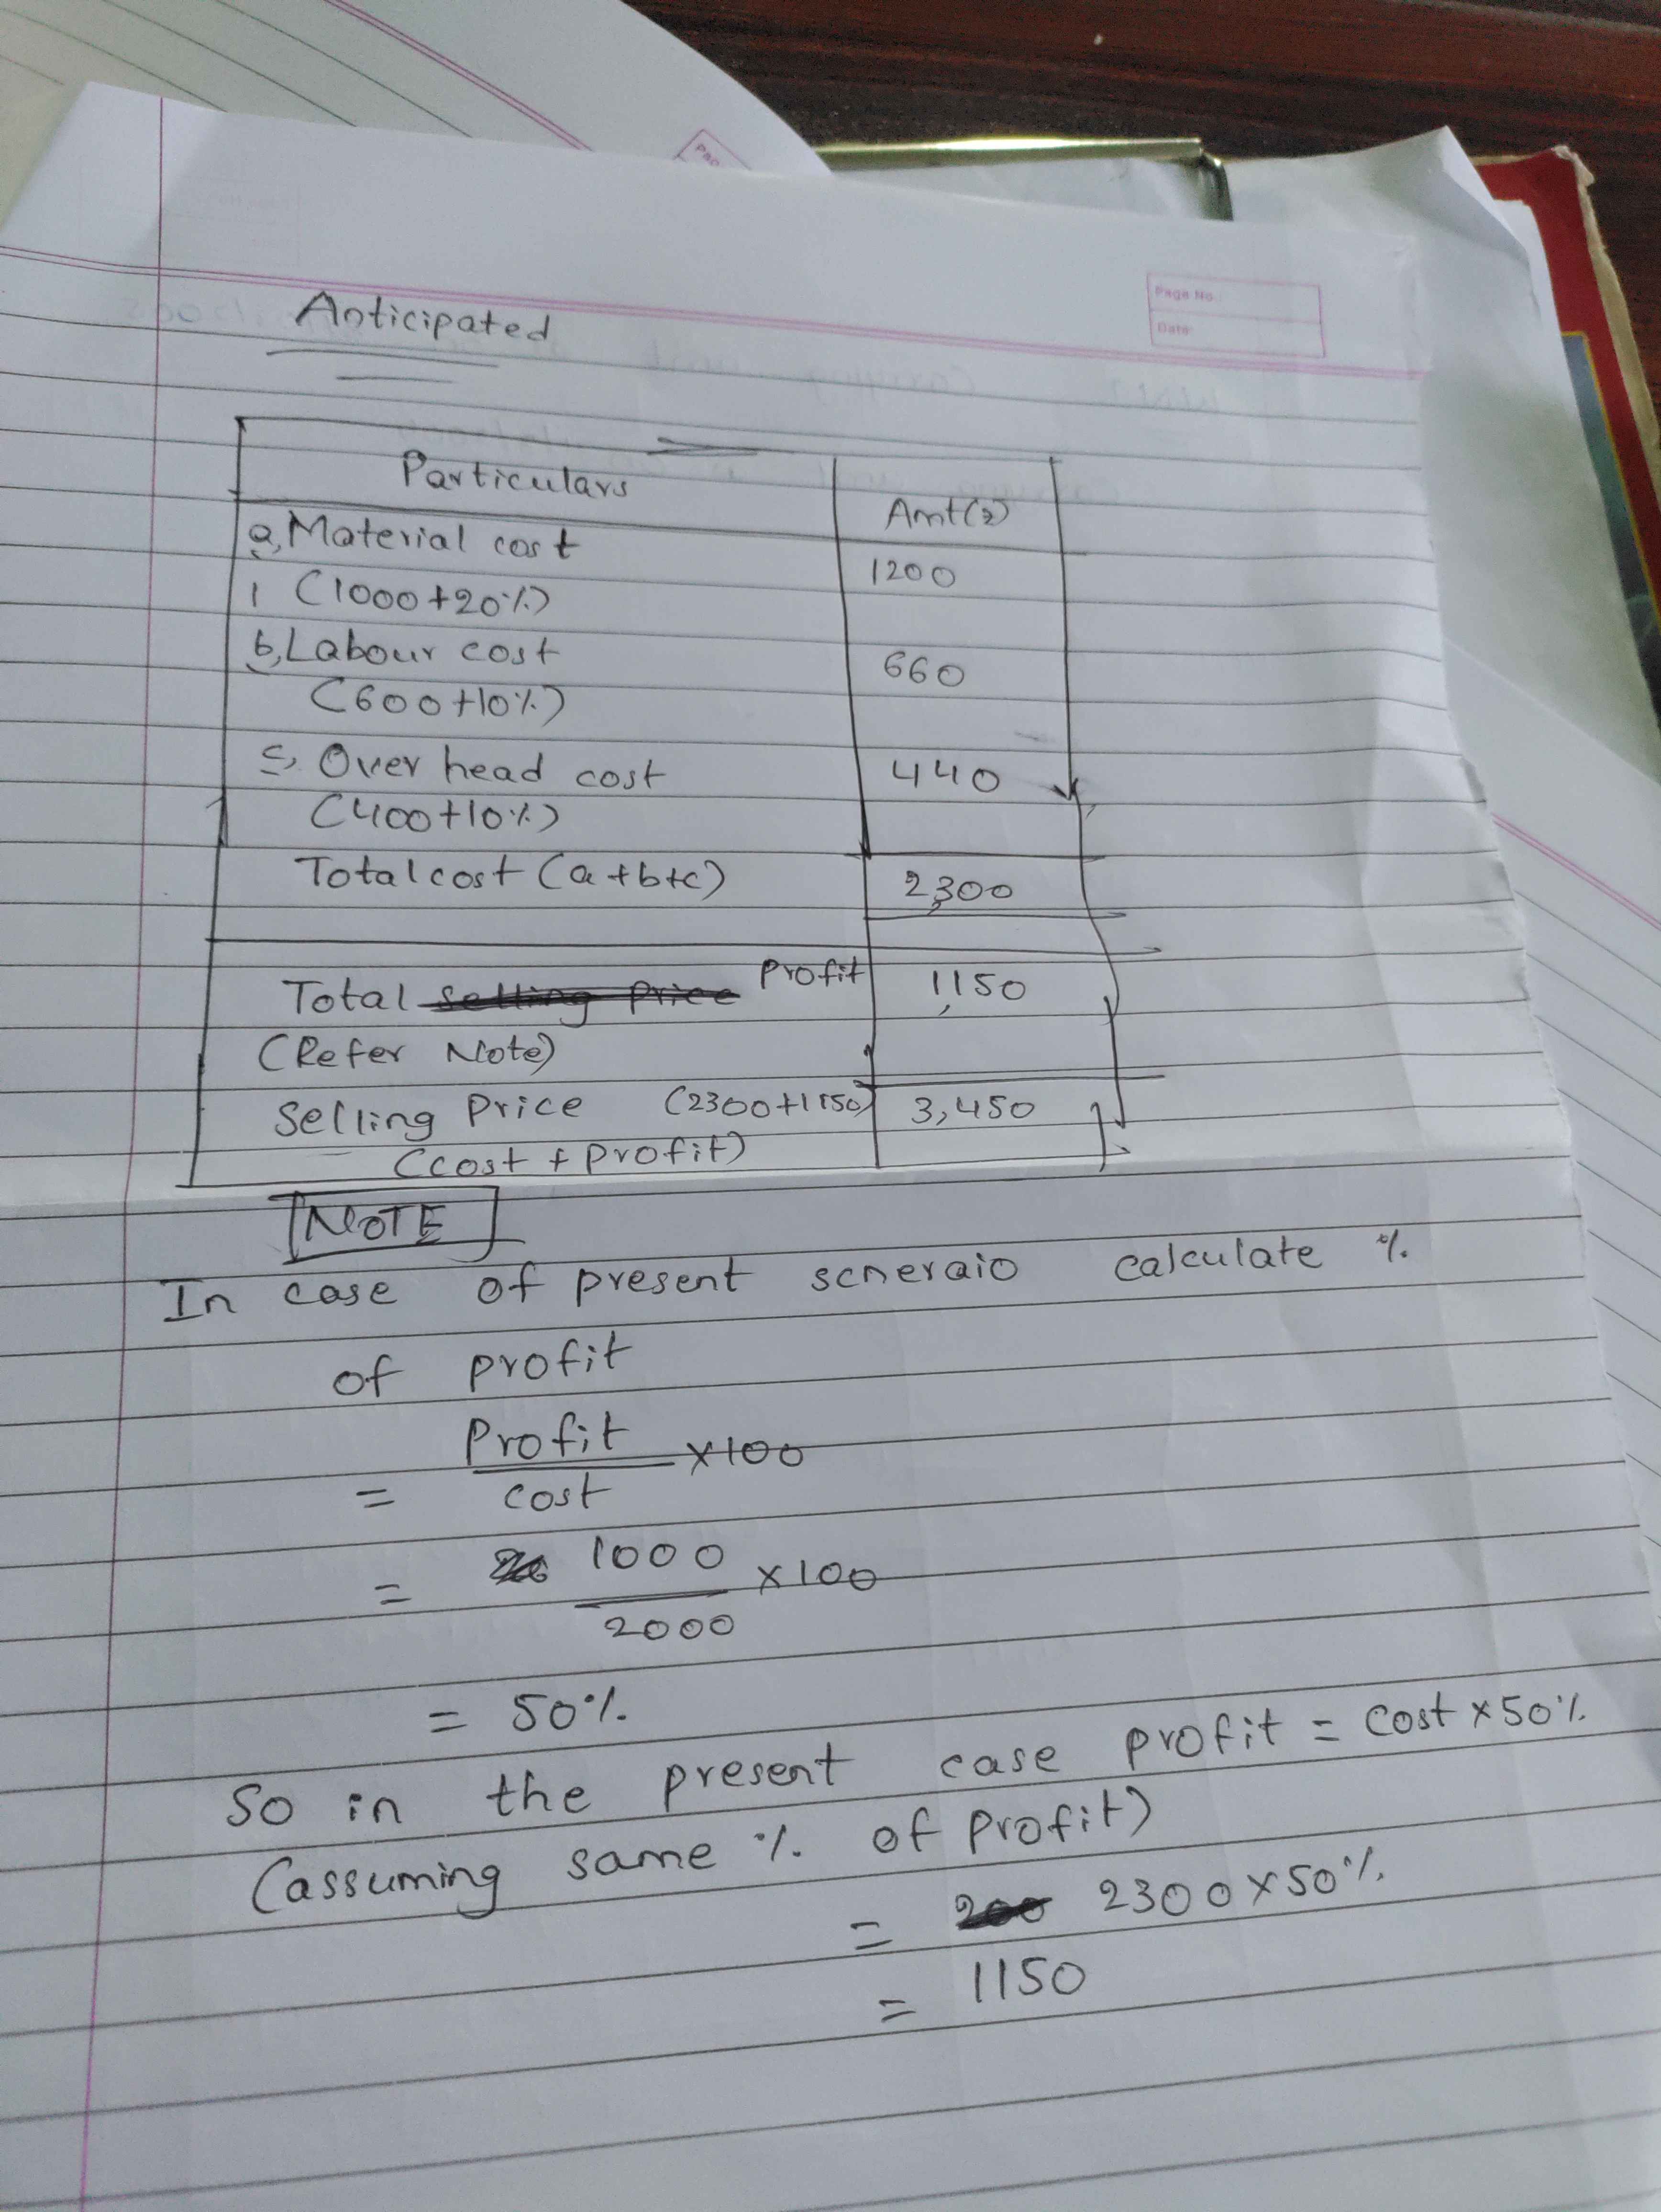 Pag
Page No.:
Date:
Anticipated
Particulars
Amt(₹)
a, Material cost
(1000+20%)
1200
b, Labour cost
660
(600+10%)
c, Over head cost
440
(400+10%)
Total cost (a+b+c)
2,300
Total selling price Profit
1,150
(Refer Note)
Selling Price (2300+1150)
3,450
(cost + Profit)
NOTE
In case of present scneraio calculate %
of profit
Profit ×100
= cost
= 1000 ×100
2000
= 50%
So in the present case profit = cost × 50%
(assuming same % of profit)
= 2300×50%
= 1150